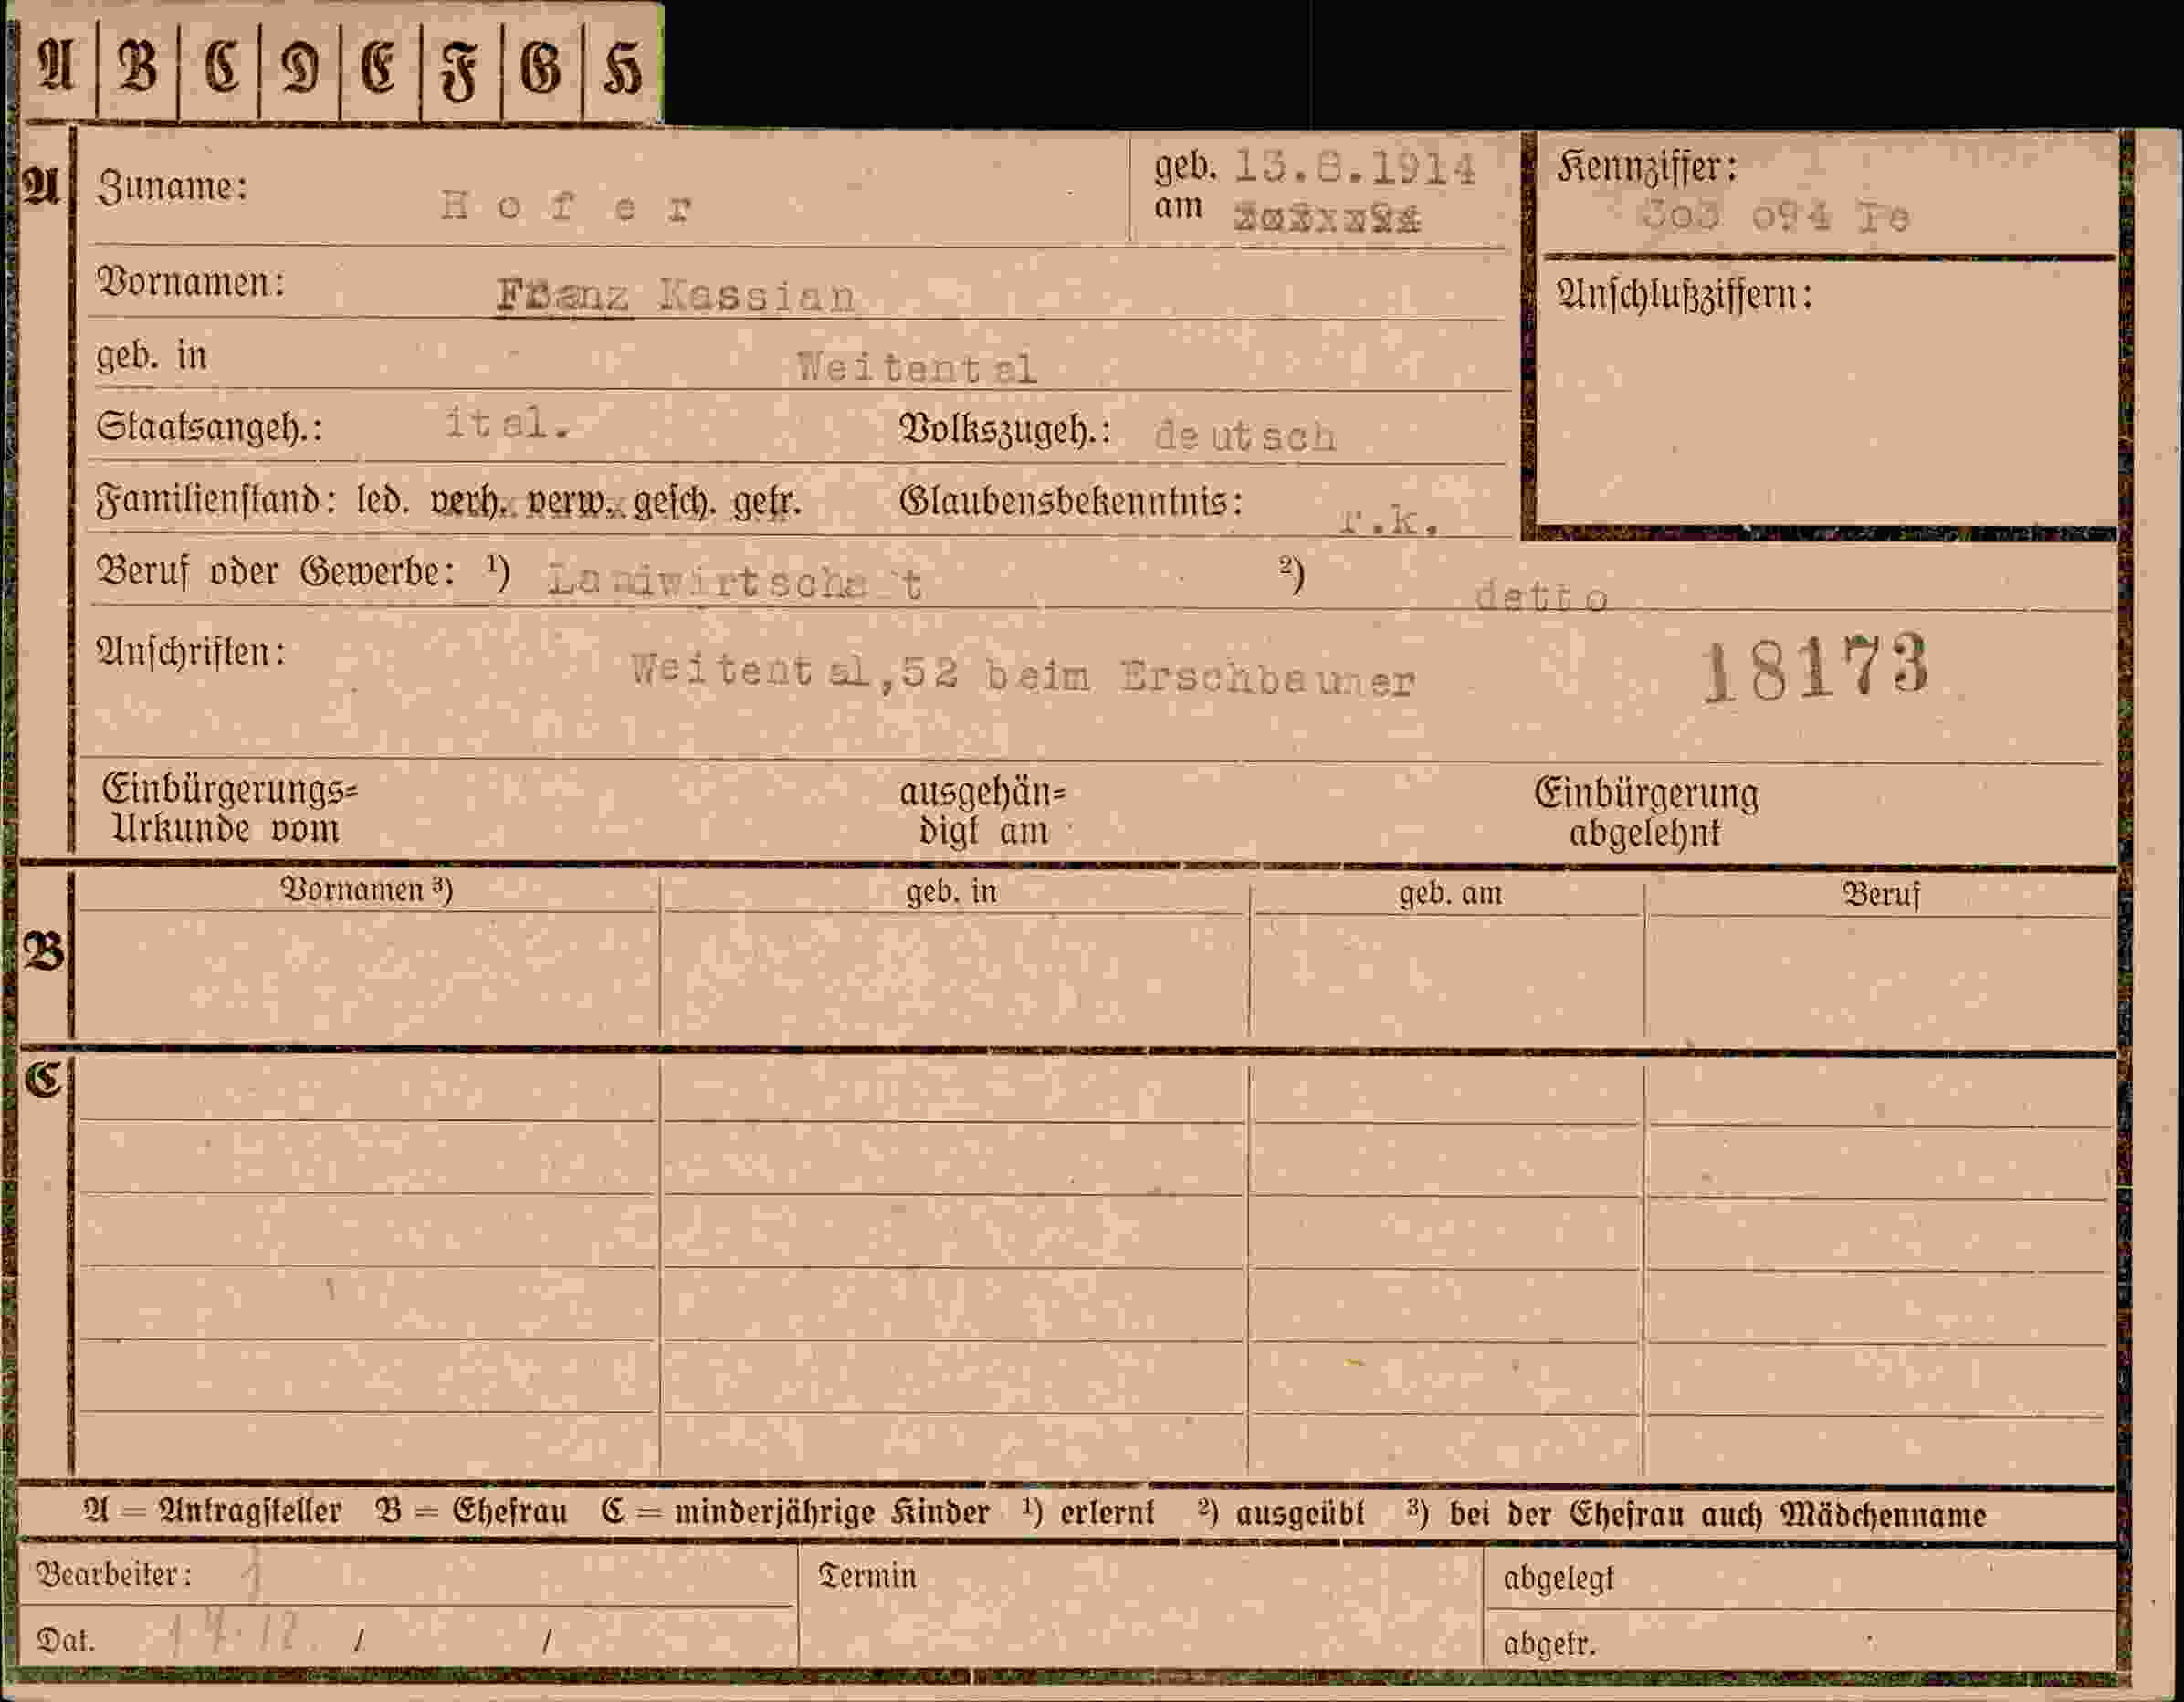 A B C D E F G H
A Zuname: Hofer geb. am 13.8.1914 Kennziffer: 303 094 Te
Vornamen: Franz Kassian Anschlußziffern:
geb. in Weitental
Staatsangeh.: ital. Volkszugeh.: deutsch
Familienstand: led. verh. verw. gesch. getr. Glaubensbekenntnis: r.k.
Beruf oder Gewerbe: ¹) Landwirtschaft ²) detto
Anschriften: Weitental,52 beim Erschbaumer 18173
Einbürgerungs= ausgehän= Einbürgerung
Urkunde vom digt am abgelehnt
B Vornamen ³) geb. in geb. am Beruf
C
A = Antragsteller B = Ehefrau C = minderjährige Kinder ¹) erlernt ²) ausgeübt ³) bei der Ehefrau auch Mädchenname
Bearbeiter: Termin abgelegt
Dat. / / abgetr.